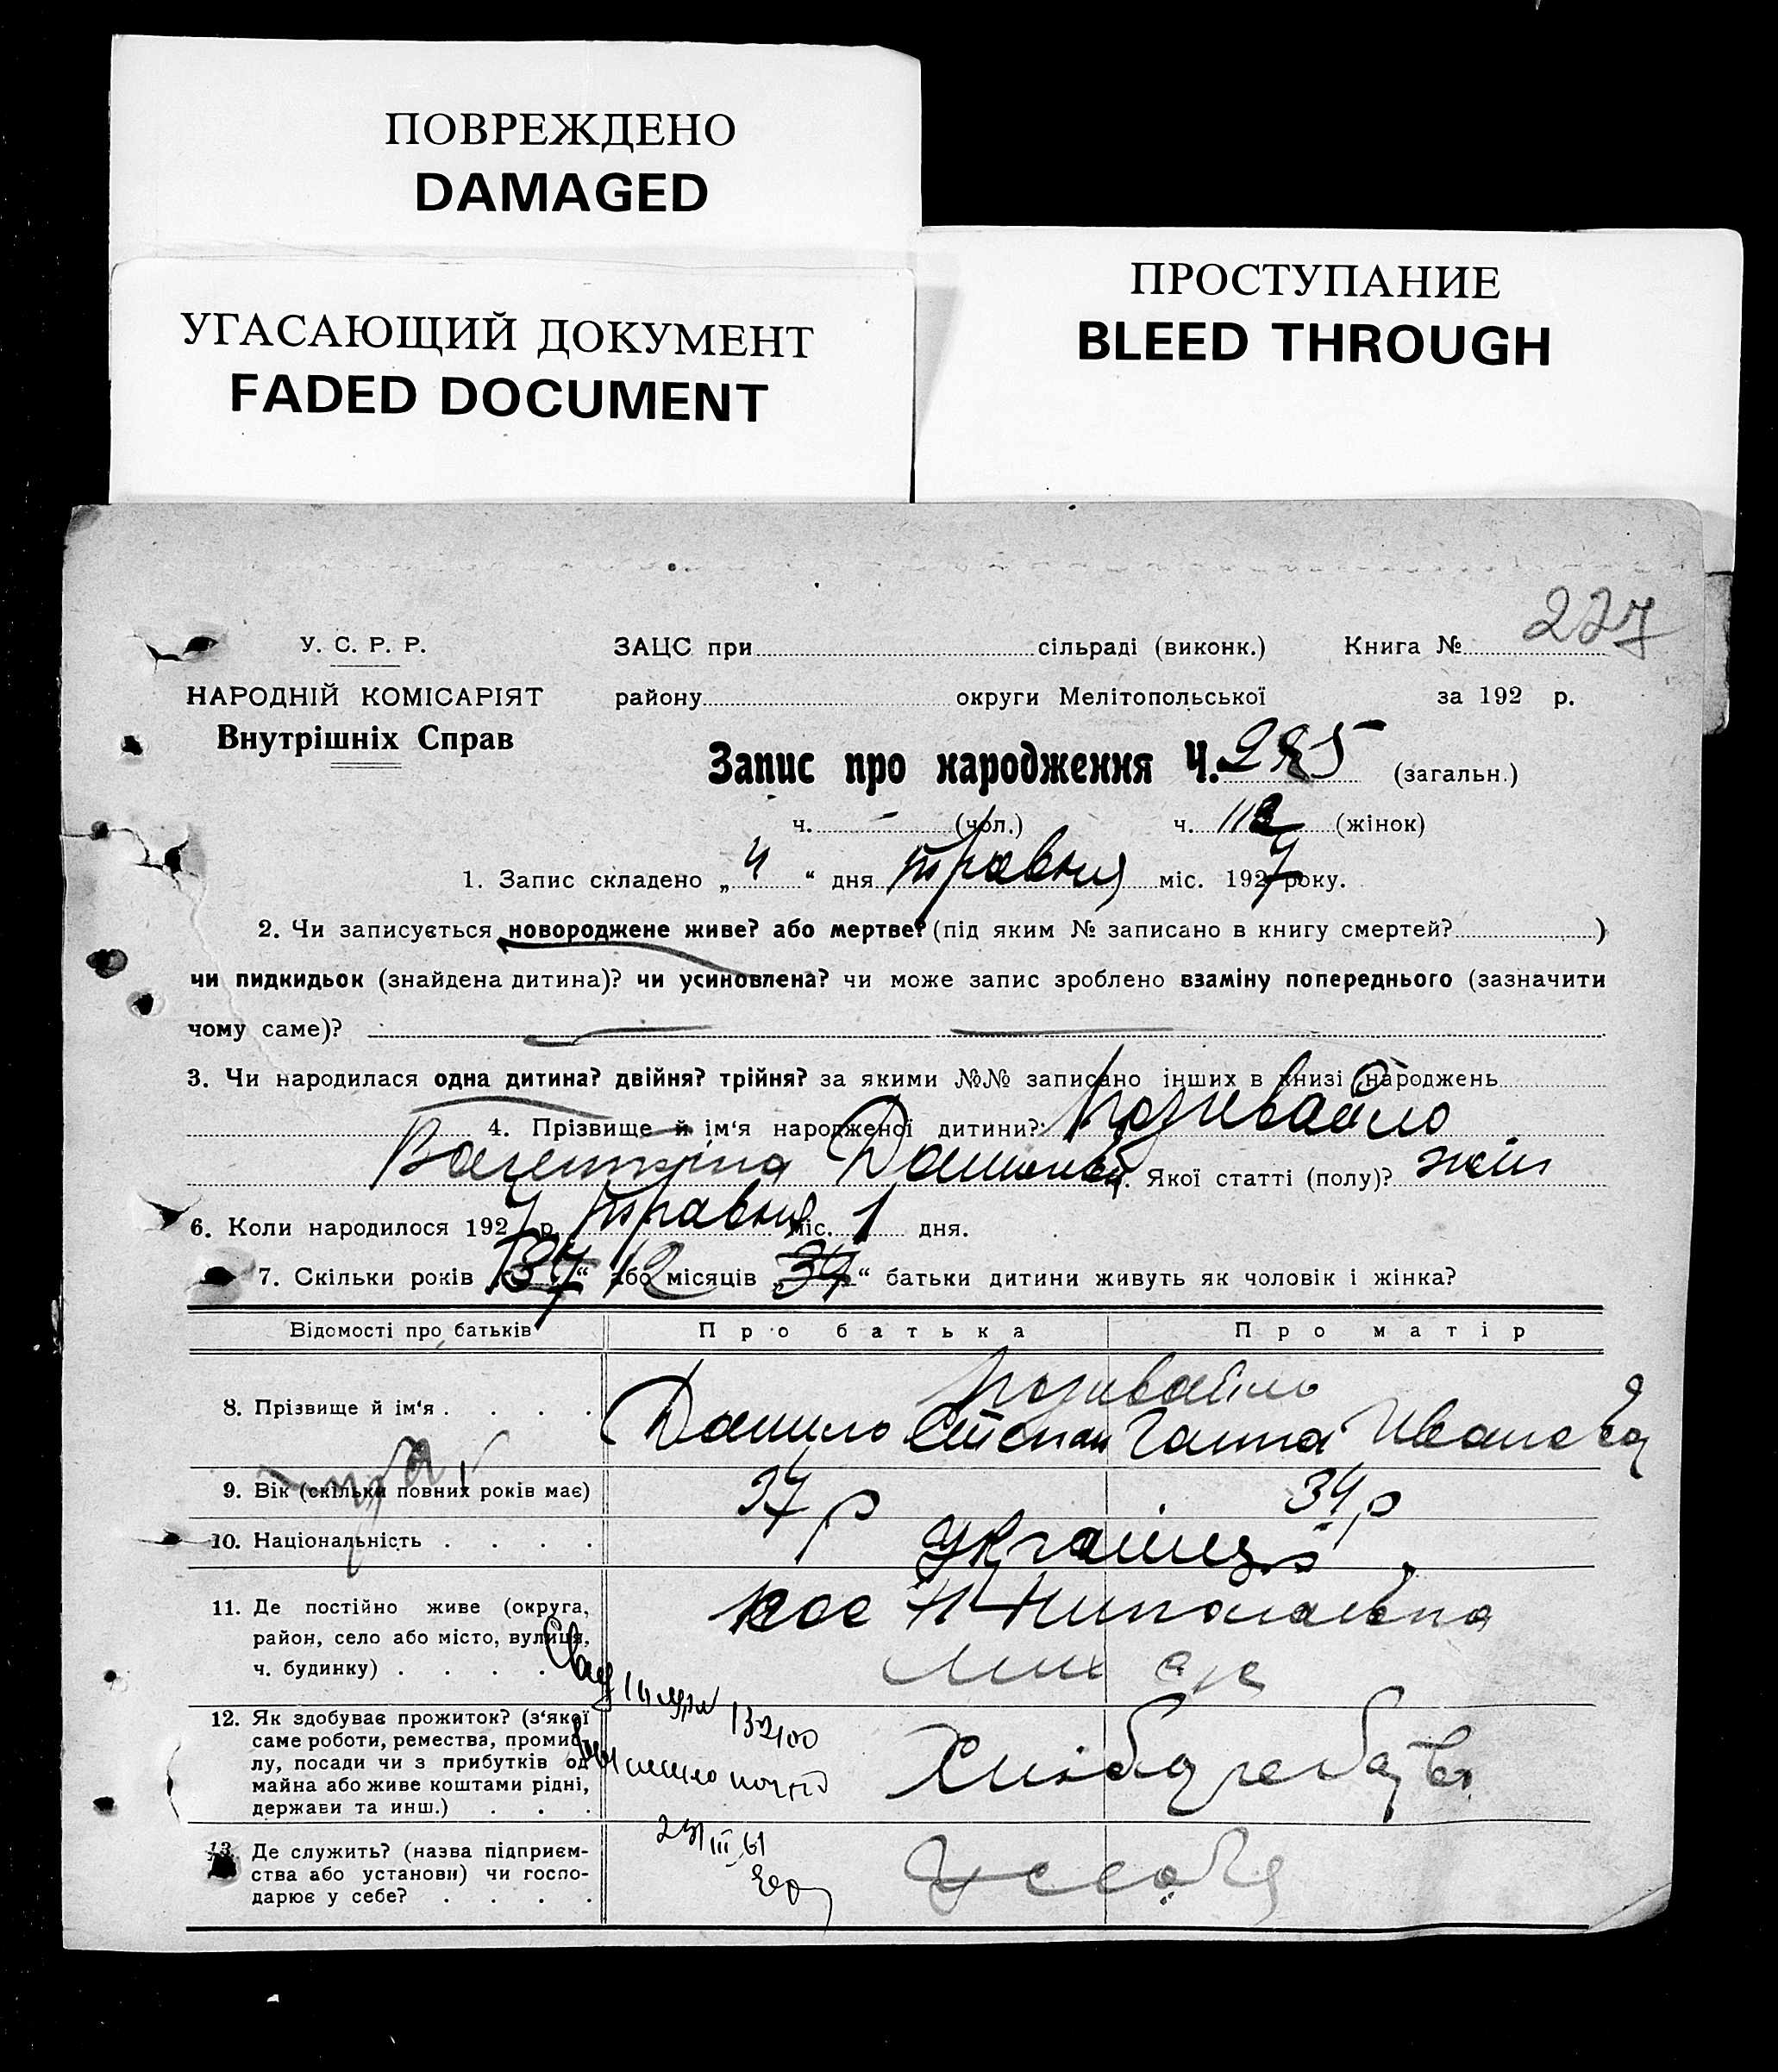 ПОВРЕЖДЕНО
DAMAGED
УГАСАЮЩИЙ ДОКУМЕНТ
FADED DOCUMENT
ПРОСТУПАНИЕ
BLEED THROUGH
227
У. С. Р. Р. ЗАЦС при сільраді (виконк.) Книга №
НАРОДНІЙ КОМІСАРІЯТ району округи Мелітопольської за 192 р.
Внутрішніх Справ
Запис про народження Ч. 225 (загальн.)
ч. – (чол.) ч. 112 (жінок)
1. Запис складено „ 4 “ дня травня міс. 1927 року.
2. Чи записується новороджене живе? або мертве? (під яким № записано в книгу смертей? )
чи пидкидьок (знайдена дитина)? чи усиновлена? чи може запис зроблено взаміну попереднього (зазначити
чому саме)?
3. Чи народилася одна дитина? двійня? трійня? за якими №№ записано інших в книзі народжень
4. Прізвище й ім‘я народженої дитини?
Валентина Якої статті (полу)? жін
6. Коли народилося 1927 р. травня міс. 1 дня.
7. Скільки років 12 „37“ або місяців „34“ батьки дитини живуть як чоловік і жінка?
Відомості про батьків Про батька Про матір
8. Прізвище й ім‘я . . . . Данило Степан Ганна Иванова
9. Вік (скільки повних років має) 37 р 34 р
10. Національність . . . . українці
11. Де постійно живе (округа,
район, село або місто, вулиця,
ч. будинку) . . . .
12. Як здобуває прожиток? (з‘якої
саме роботи, ремества, промис-
лу, посади чи з прибутків од
майна або живе коштами рідні,
держави та инш.) . . . Хліборобство
13. Де служить? (назва підприєм-
ства або установи) чи госпо-
дарює у себе? . . . . у себе